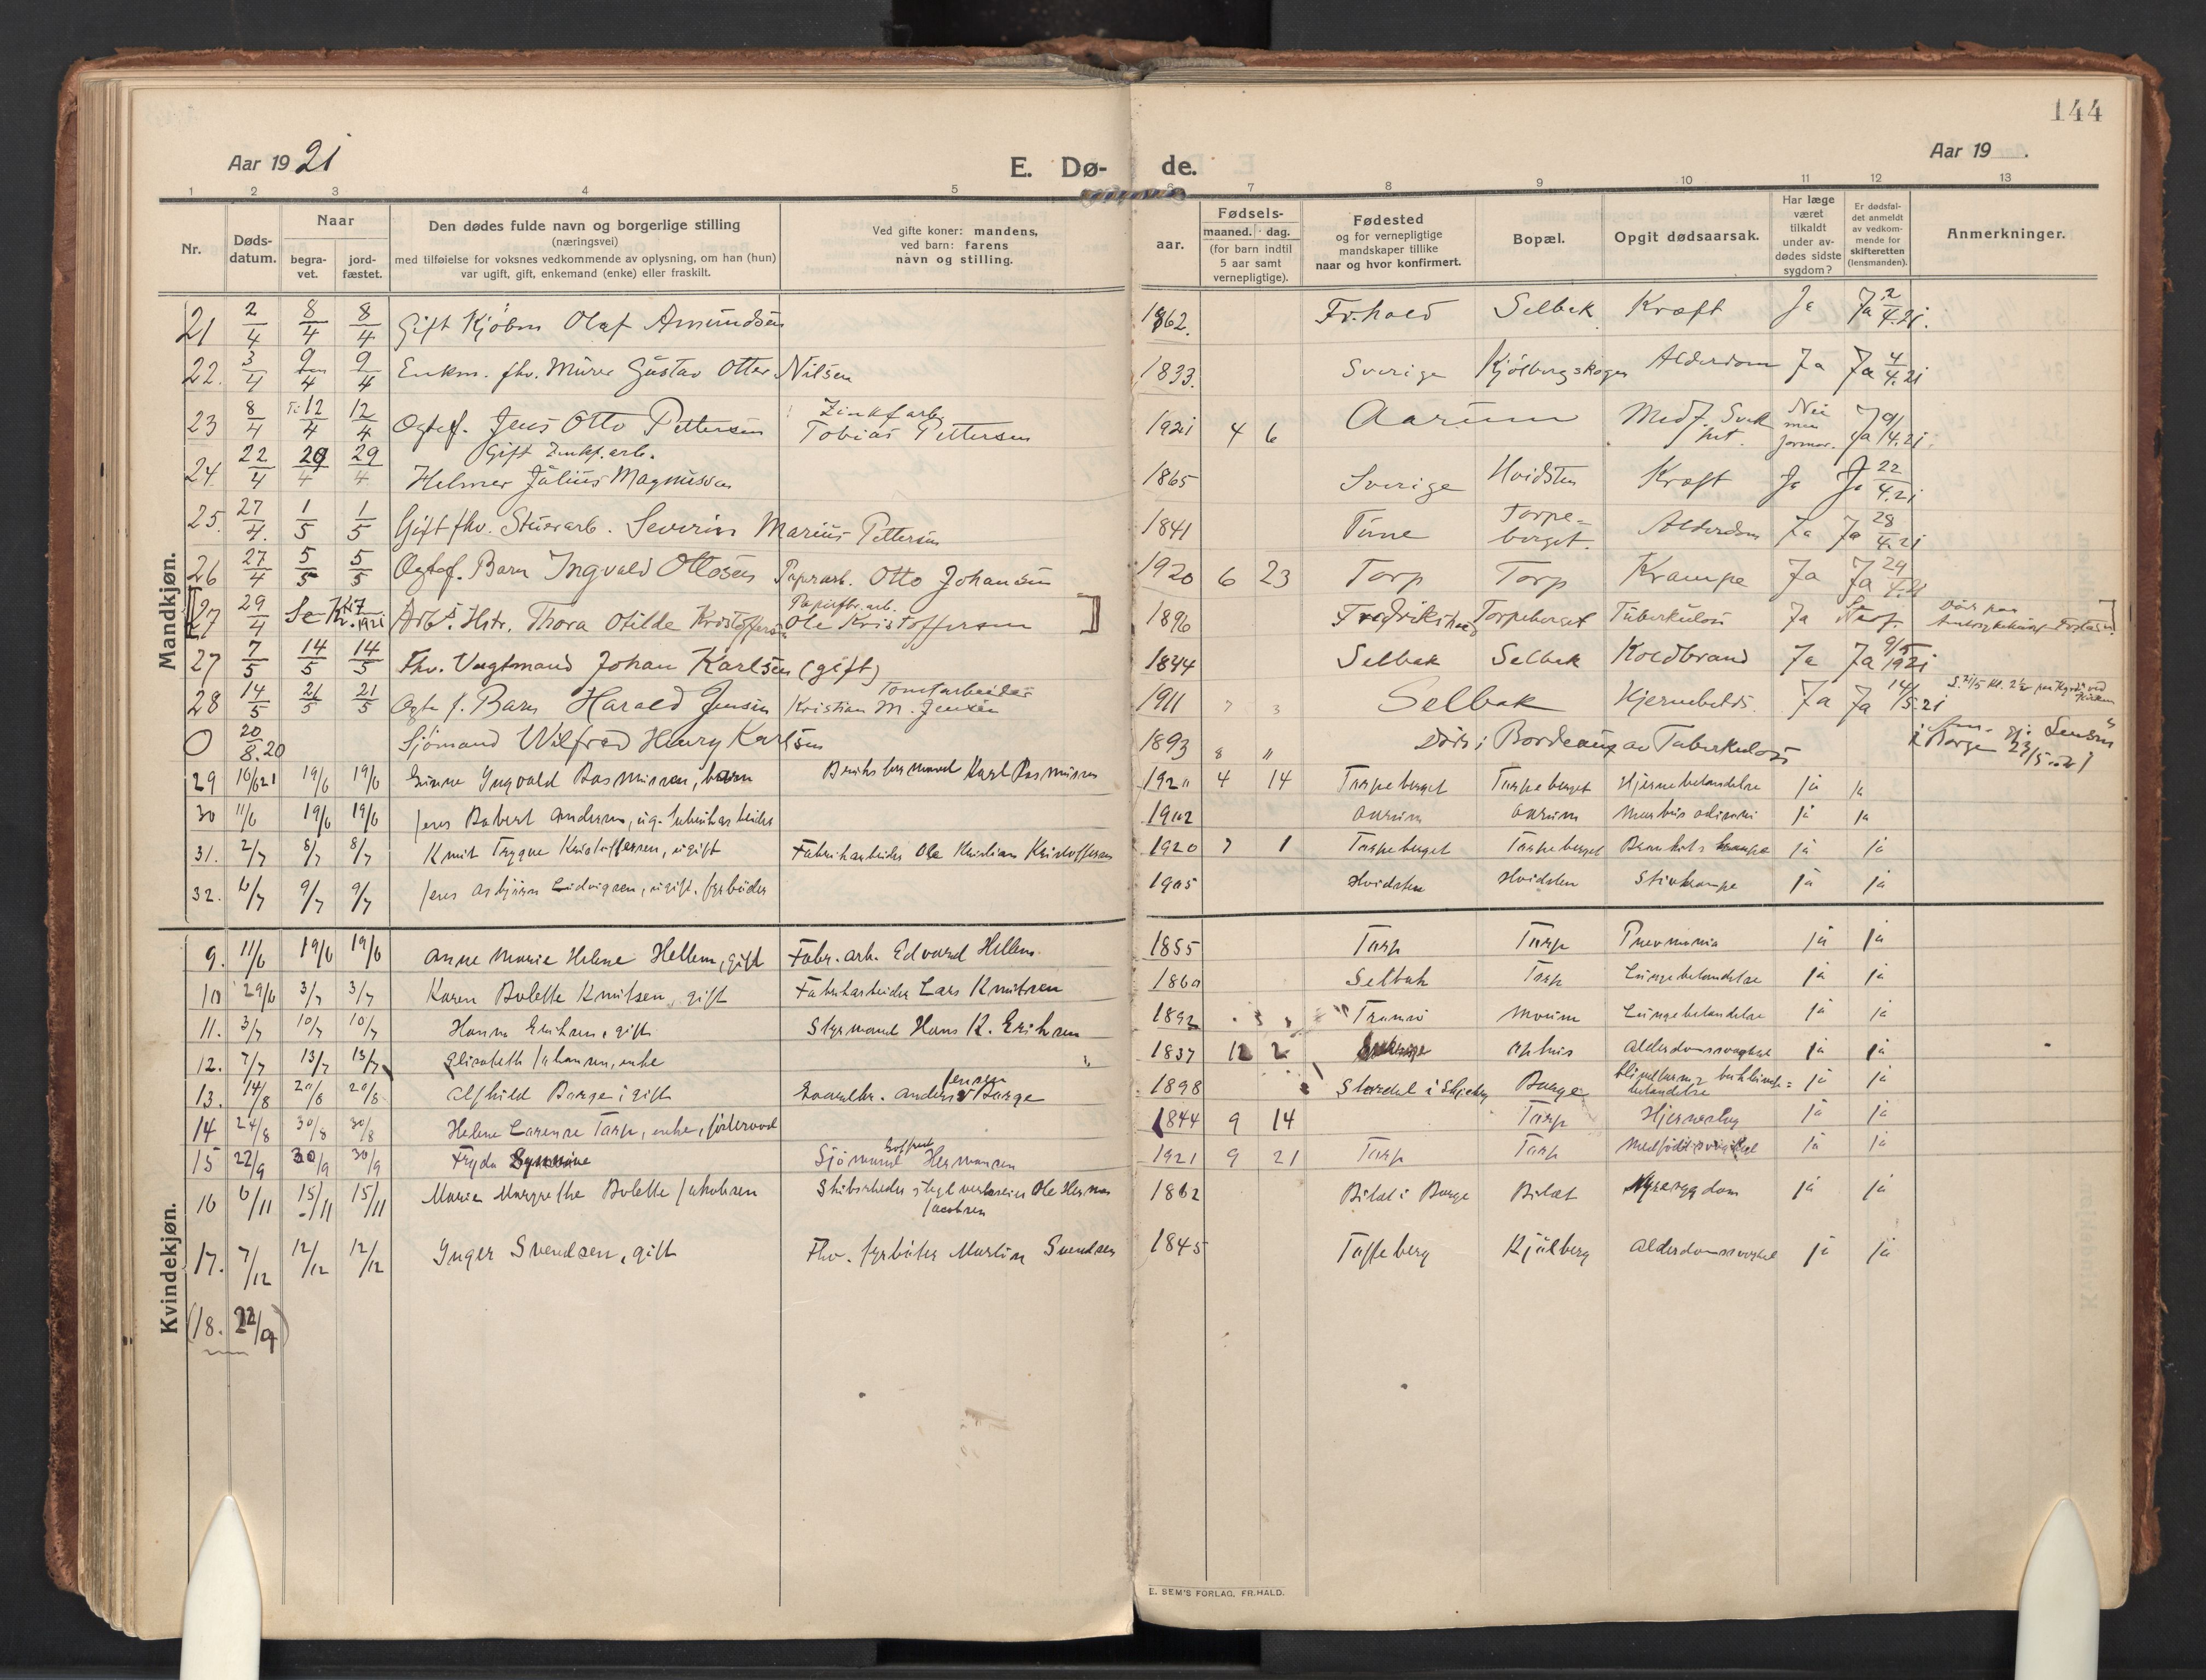 144
Aar 1921
E. Dø- de.
Aar 19 .
1 2 3 4 5 6 7 8 9 10 11 12 13
Nr.
Døds-
datum.
Naar
begra-
vet.
jord-
fæstet.
Den dødes fulde navn og borgerlige stilling
(næringsvei)
med tilføielse for voksnes vedkommende av oplysning, om han (hun)
var ugift, gift, enkemand (enke) eller fraskilt.
Ved gifte koner: mandens,
ved barn: farens
navn og stilling.
Fødsels-
aar.
maaned. dag.
(for barn indtil
5 aar samt
vernepligtige).
Fødested
og for vernepligtige
mandskaper tillike
naar og hvor konfirmert.
Bopæl.
Opgit dødsaarsak.
Har læge
været
tilkaldt
under av-
dødes sidste
sygdom?
Er dødsfal-
det anmeldt
av vedkom-
mende for
skifteretten
(lensmanden).
Anmerkninger.
Mandkjøn.
21 2/4 8/4 8/4 Gift Kjøbm Olaf Amundsen 1862. Fr.hald Selbak Kræft Ja Ja 2/4.21.
22. 3/4 9/4 9/4 Enkm. fhv. Murer Gustav Otter Nilsen 1833. Sverige Kjölbergskogen Alderdom Ja Ja 4/4.21
23 8/4 12/4 12/4 Ogtef. Jens Otto Pettersen Zinkf arb. Tobias Pettersen 1921 4 6 Aarum Medf. Svak Nei Ja 9/4.21.
Gift Zinkf. arb.
24. 22/4 29/4 29/4 Helmer Julius Magnussen 1865 Sverige Hvidsten Kræft Ja Ja 22/4.21
25. 27/4. 1/5 1/5 Gift fhv. Stuerarb. Severin Marius Pettersen 1841 Tune Torpe-
berget. Alderdom Ja Ja 28/4.21
26 27/4 5/5 5/5 Ogtef. Barn Ingvald Ottosen Papirarb. Otto Johansen 1920 6 23 Torp Torp Krampe Ja Ja 29/4.21
[27 29/4 Se Kv. 17 1921 Arb. Hstr. Thora Otilde Kristoffersen Papirfbr. arb. Ole Kristoffersen] 1896 Fredrikshald Torpeberget Tuberkulose Ja
27 7/5 14/5 14/5 Fhv. Vagtmand Johan Karlsen (gift) 1844 Selbak Selbak Koldbrand Ja Ja 9/5 1921
28 14/5 21/5 21/5 Ogte f. Barn Harald Jensen Tomtarbeider Kristian M. Jensen 1911 7 3 Selbak Hjernebetds. Ja Ja 14/5.21
O 20/8.20 Sjömand Wilfred Henry Karlsen 1893 8 " Döde i Bordeaux av Tuberkulose i Borge 23/5 21
29 10/6 21 19/6 19/6 Einar Yngvald Rasmussen, barn Karl Rasmussen 192" 4 14 Torpeberget Torpeberget Hjernebetændelse ja ja
30 11/6 19/6 19/6 Jens Robert Andersen, ug. fabrikarbeider 1902 Aarum Aarum ja ja
31. 2/7 8/7 8/7 Knut Trygve Kristoffersen, ugift Fabrikarbeider Ole Kristian Kristoffersen 1920 7 1 Torpeberget Torpeberget ja ja
32. 6/7 9/7 9/7 Jens Asbjørn Ludvigsen, ugift. fyrbøder 1905 Hvidsten Hvidsten Stivkrampe ja ja
Kvindekjøn.
9. 11/6 19/6 19/6 Anne Marie Helene Hellem, gift Fabr. arb. Edvard Hellem. 1855 Torp Torp Pneumonia ja ja
10 29/6 3/7 3/7 Karen Bolette Knutsen, gift Fabrikarbeider Lars Knutsen 1860 Selbak Torp Lungebetændelse ja ja
11. 3/7 10/7 10/7 Hanna Eriksen, gift Styrmand Hans K. Eriksen 1892 Tromsö Moum Lungebetændelse ja ja
12. 7/7 13/7 13/7 Elisabeth Johansen, enke " 1837 12 2 Aphus Alderdomssvaghet ja ja
13. 14/8 20/8 20/8 Alfhild Borge, gift Gaardbr. Anders Jensen Borge 1898 Stordal i Skjeberg Borge ja ja
14 24/8 30/8 30/8 Helene Larense Torp, enke, 1844 9 14 Torp Hjerneslag ja ja
15 22/9 30/9 30/9 Fryda Sjömand Hermansen 1921 9 21 Torp Torp Medfödt svaghet ja ja
16 6/11 15/11 15/11 Marie Margrethe Bolette Jakobsen Ole Herman
Jacobsen 1862 Bilet i Borge Bilet Nyresygdom ja ja
17. 7/12 12/12 12/12 Inger Svendsen, gift Fhv. fyrbøter Martin Svendsen 1845 Toffeberg Kjølberg Alderdomssvaghet ja ja
(18. 22/9)
E. SEM'S FORLAG, FR.HALD.